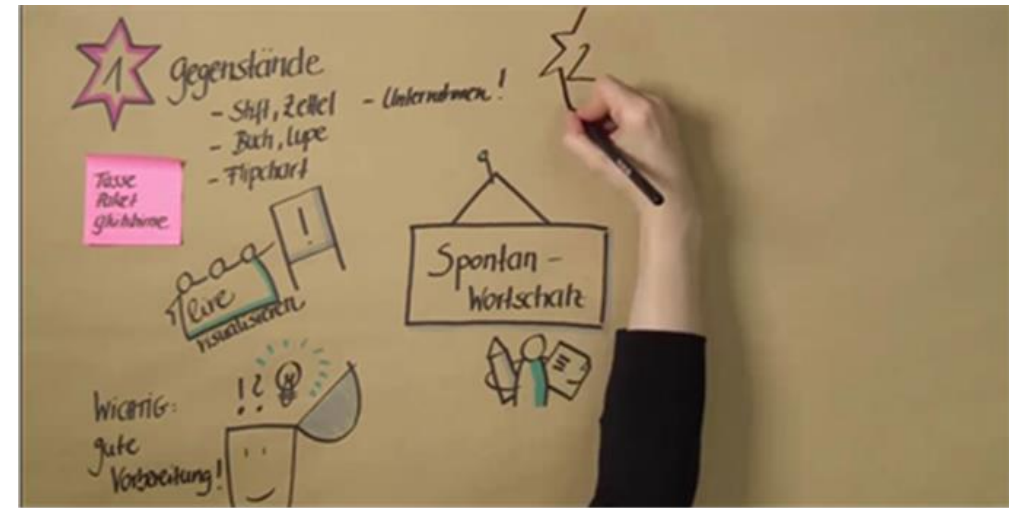 1
Gegenstände
- Stift, Zettel
- Buch, Lupe
- Flipchart
- Unternehmen!
Tasse
Paket
Glühbirne
!
live
visualisieren
Spontan-
Wortschatz
!?
WICHTIG:
gute
Vorbereitung!
2